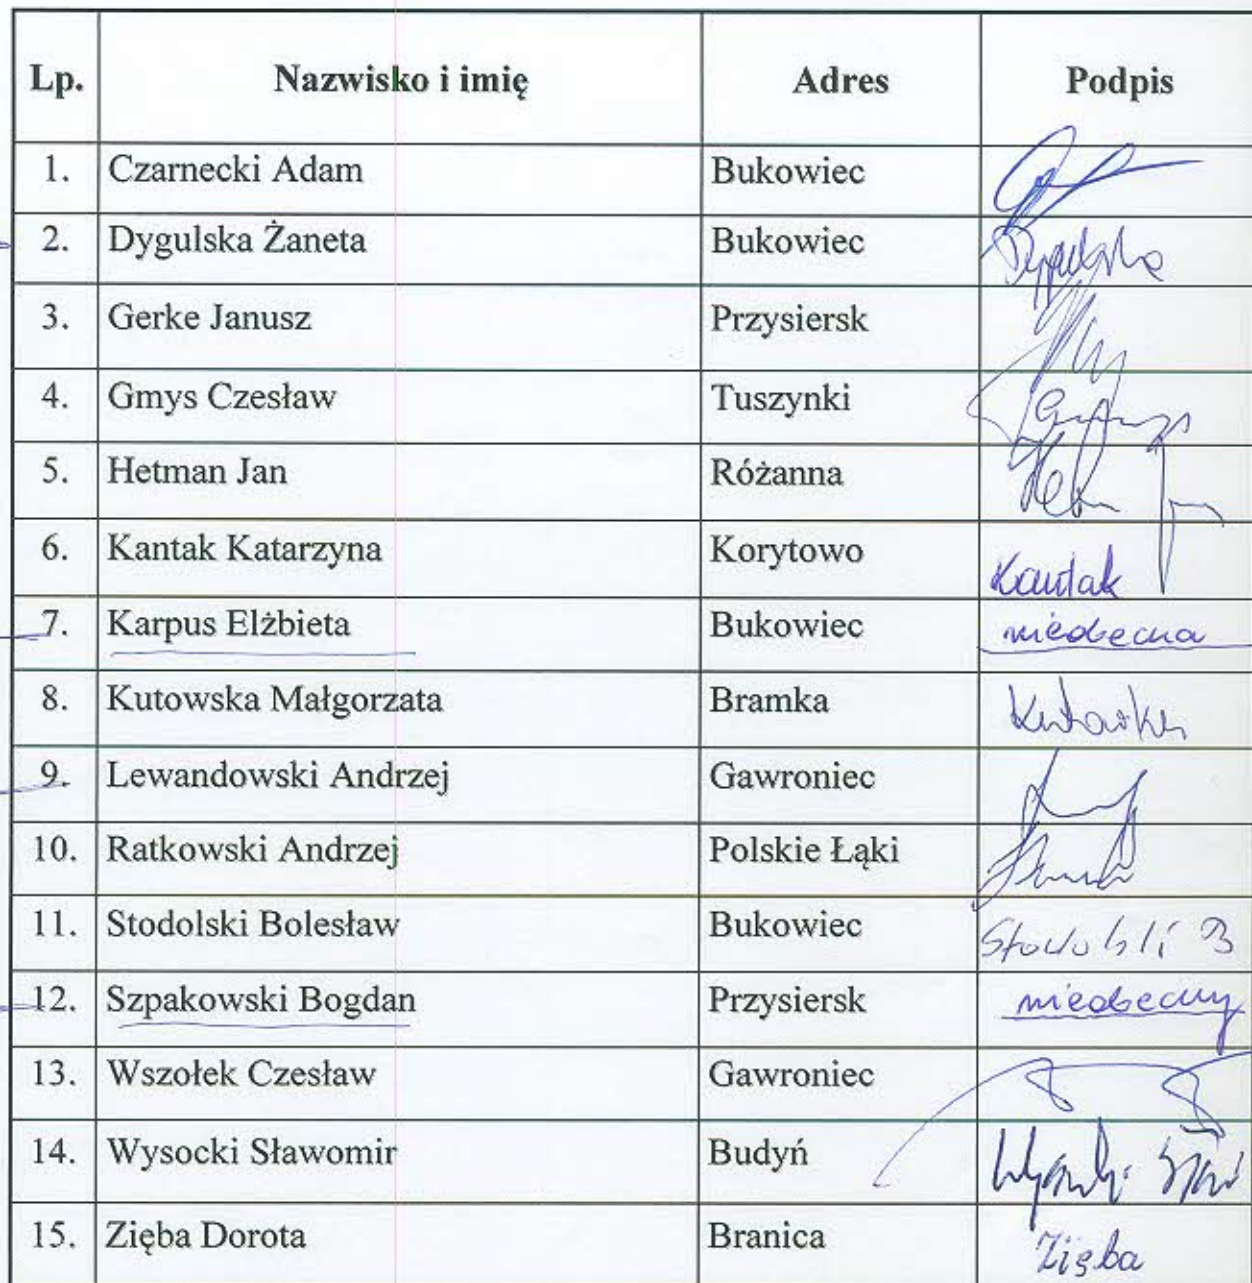 Lp. Nazwisko i imię Adres Podpis
1. Czarnecki Adam Bukowiec
2. Dygulska Żaneta Bukowiec Dygulska
3. Gerke Janusz Przysiersk
4. Gmys Czesław Tuszynki
5. Hetman Jan Różanna
6. Kantak Katarzyna Korytowo Kantak
7. Karpus Elżbieta Bukowiec nieobecna
8. Kutowska Małgorzata Bramka
9. Lewandowski Andrzej Gawroniec
10. Ratkowski Andrzej Polskie Łąki
11. Stodolski Bolesław Bukowiec
12. Szpakowski Bogdan Przysiersk nieobecny
13. Wszołek Czesław Gawroniec
14. Wysocki Sławomir Budyń
15. Zięba Dorota Branica Zięba